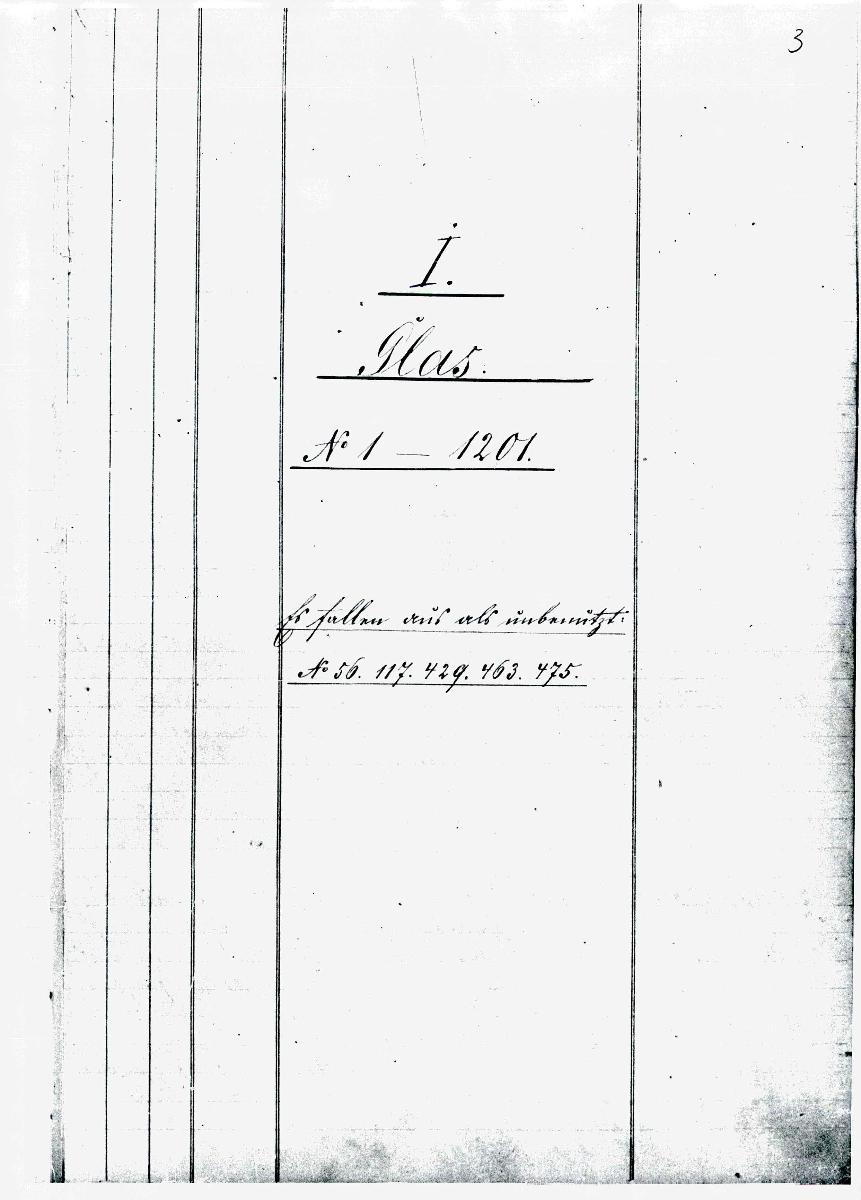 3
I.
Glas.
No 1 — 1201.
Es fallen aus als unbenützt:
No 56. 117. 429. 463. 475.